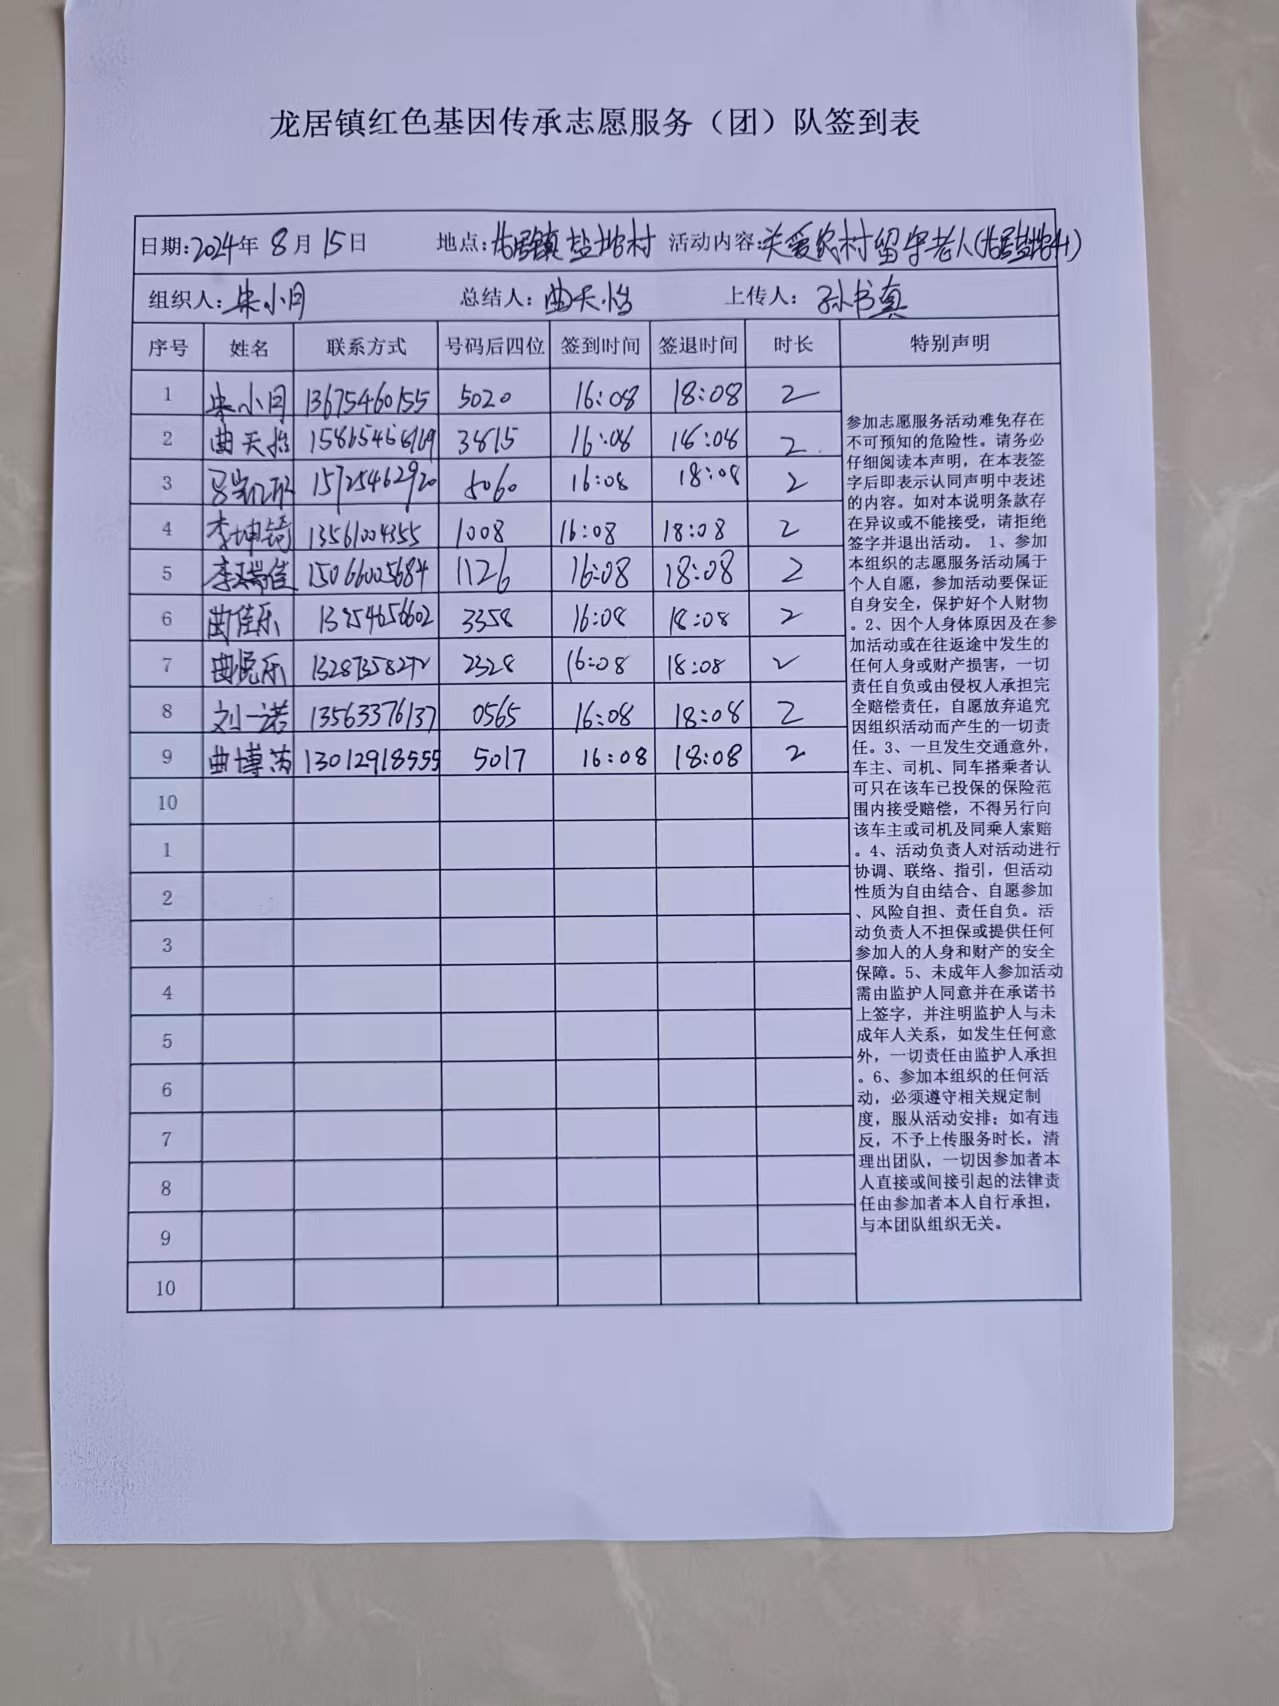 龙居镇红色基因传承志愿服务（团）队签到表
日期:2024年 8月15日 地点:龙居镇盐坨村 活动内容:关爱农村留守老人(龙居盐坨村)
组织人:宋小月 总结人:曲天怡 上传人:孙书真
序号 姓名 联系方式 号码后四位 签到时间 签退时间 时长 特别声明
1 宋小月 13675460155 5020 16:08 18:08 2
2 曲天怡 3815 16:08 18:08 2
3 15725462920 5060 16:08 18:08 2
4 李坤锜 13561004355 1008 16:08 18:08 2
5 李瑞佳 15066005684 1126 16:08 18:08 2
6 曲佳乐 13854656602 3358 16:08 18:08 2
7 曲悦乐 2328 16:08 18:08 2
8 刘一诺 13563376137 0565 16:08 18:08 2
9 曲博芮 13012918555 5017 16:08 18:08 2
10
1
2
3
4
5
6
7
8
9
10
参加志愿服务活动难免存在
不可预知的危险性。请务必
仔细阅读本声明，在本表签
字后即表示认同声明中表述
的内容。如对本说明条款存
在异议或不能接受，请拒绝
签字并退出活动。 1、参加
本组织的志愿服务活动属于
个人自愿，参加活动要保证
自身安全，保护好个人财物
。2、因个人身体原因及在参
加活动或在往返途中发生的
任何人身或财产损害，一切
责任自负或由侵权人承担完
全赔偿责任，自愿放弃追究
因组织活动而产生的一切责
任。3、一旦发生交通意外，
车主、司机、同车搭乘者认
可只在该车已投保的保险范
围内接受赔偿，不得另行向
该车主或司机及同乘人索赔
。4、活动负责人对活动进行
协调、联络、指引，但活动
性质为自由结合、自愿参加
、风险自担、责任自负。活
动负责人不担保或提供任何
参加人的人身和财产的安全
保障。5、未成年人参加活动
需由监护人同意并在承诺书
上签字，并注明监护人与未
成年人关系，如发生任何意
外，一切责任由监护人承担
。6、参加本组织的任何活
动，必须遵守相关规定制
度，服从活动安排；如有违
反，不予上传服务时长，清
理出团队，一切因参加者本
人直接或间接引起的法律责
任由参加者本人自行承担，
与本团队组织无关。